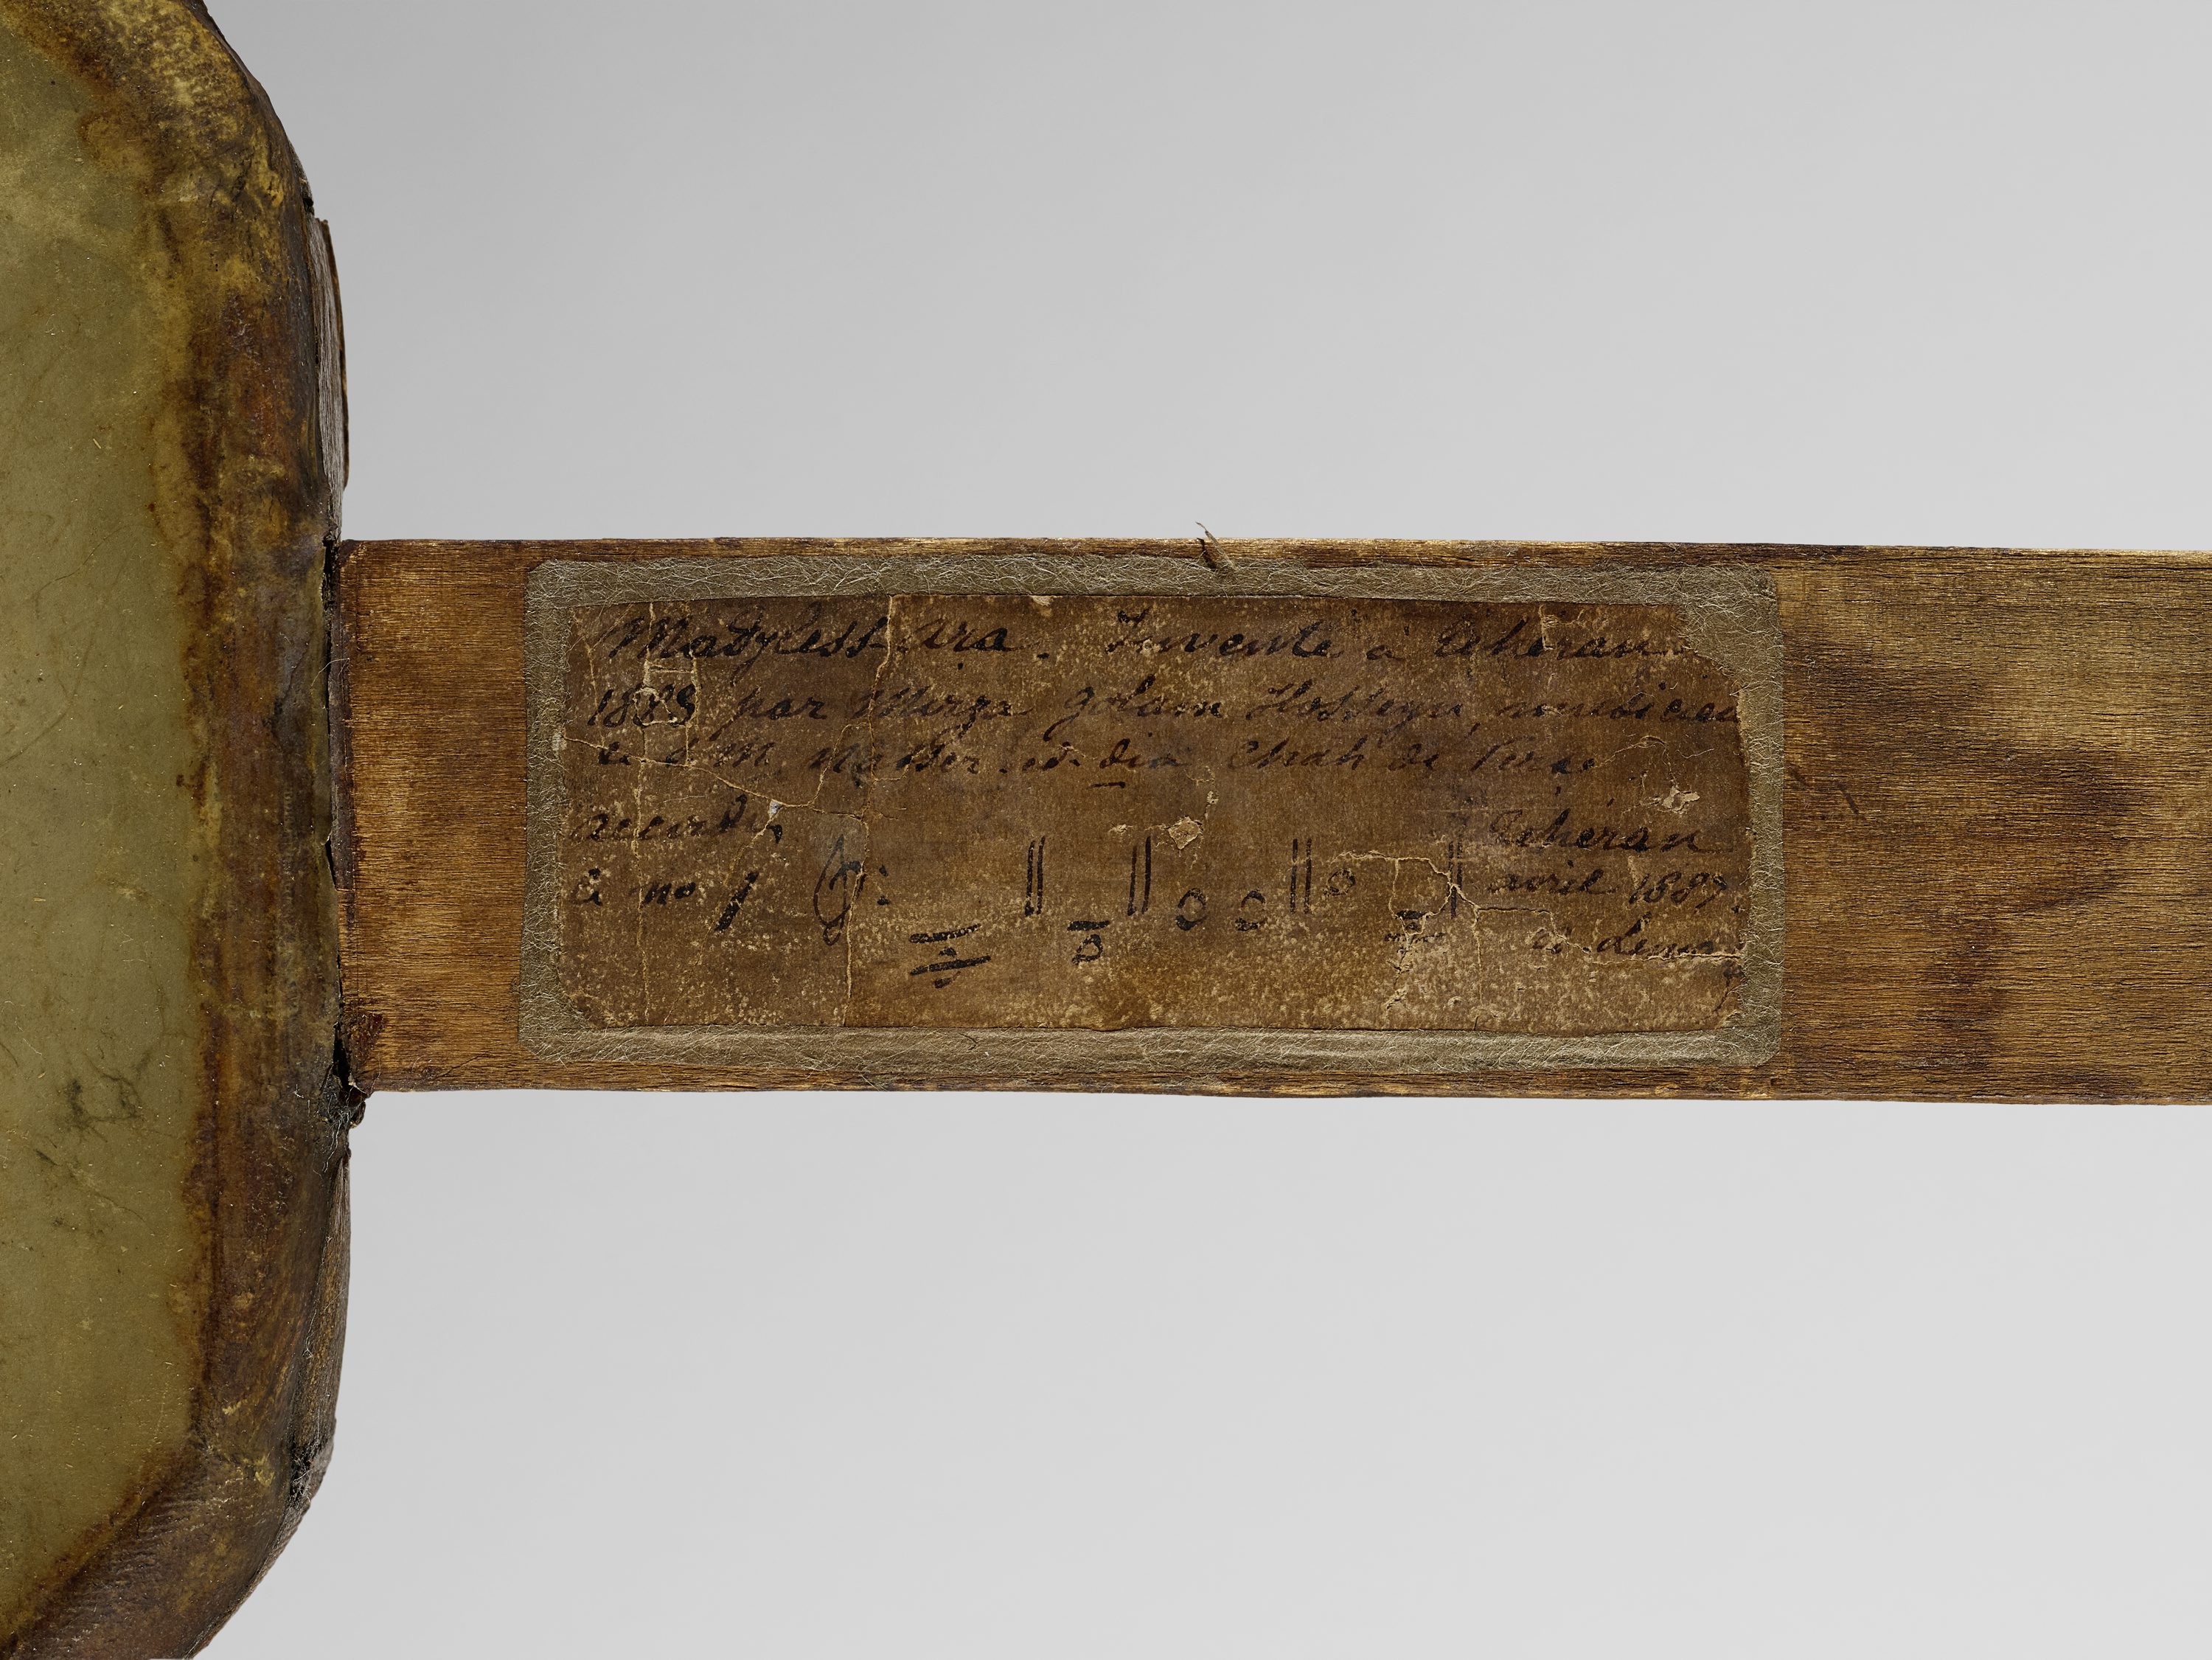 Madjless Ara. Inventé à Téhéran
1883 par Mirza Golam Hosseyn, musicien
de S. M. Nasser-ed-din Chah de Perse
accorder
le no 1
Téhéran
avril 1887.